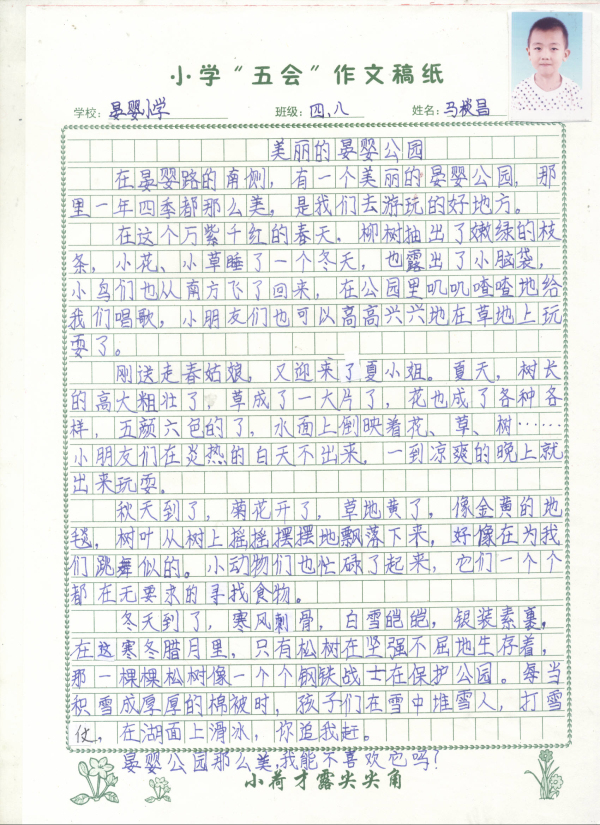 小学“五会”作文稿纸
学校：晏婴小学 班级：四、八 姓名：马 昌
美丽的晏婴公园
在晏婴路的南侧，有一个美丽的晏婴公园，那
里一年四季都那么美，是我们去游玩的好地方。
在这个万紫千红的春天，柳树抽出了嫩绿的枝
条，小花、小草睡了一个冬天，也露出了小脑袋，
小鸟们也从南方飞了回来，在公园里叽叽喳喳地给
我们唱歌，小朋友们也可以高高兴兴地在草地上玩
耍了。
刚送走春姑娘，又迎来了夏小姐。夏天，树长
的高大粗壮了，草成了一大片了，花也成了各种各
样，五颜六色的了，水面上倒映着花、草、树……
小朋友们在炎热的白天不出来，一到凉爽的晚上就
出来玩耍。
秋天到了，菊花开了，草地黄了，像金黄的地
毯，树叶从树上摇摇摆摆地飘落下来，好像在为我
们跳舞似的。小动物们也忙碌了起来，它们一个个
都在无要求的寻找食物。
冬天到了，寒风刺骨，白雪皑皑，银装素裹。
在这寒冬腊月里，只有松树在坚强不屈地生存着，
那一棵棵松树像一个个钢铁战士在保护公园。每当
积雪成厚厚的棉被时，孩子们在雪中堆雪人，打雪
仗，在湖面上滑冰，你追我赶。
晏婴公园那么美，我能不喜欢它吗？
小荷才露尖尖角